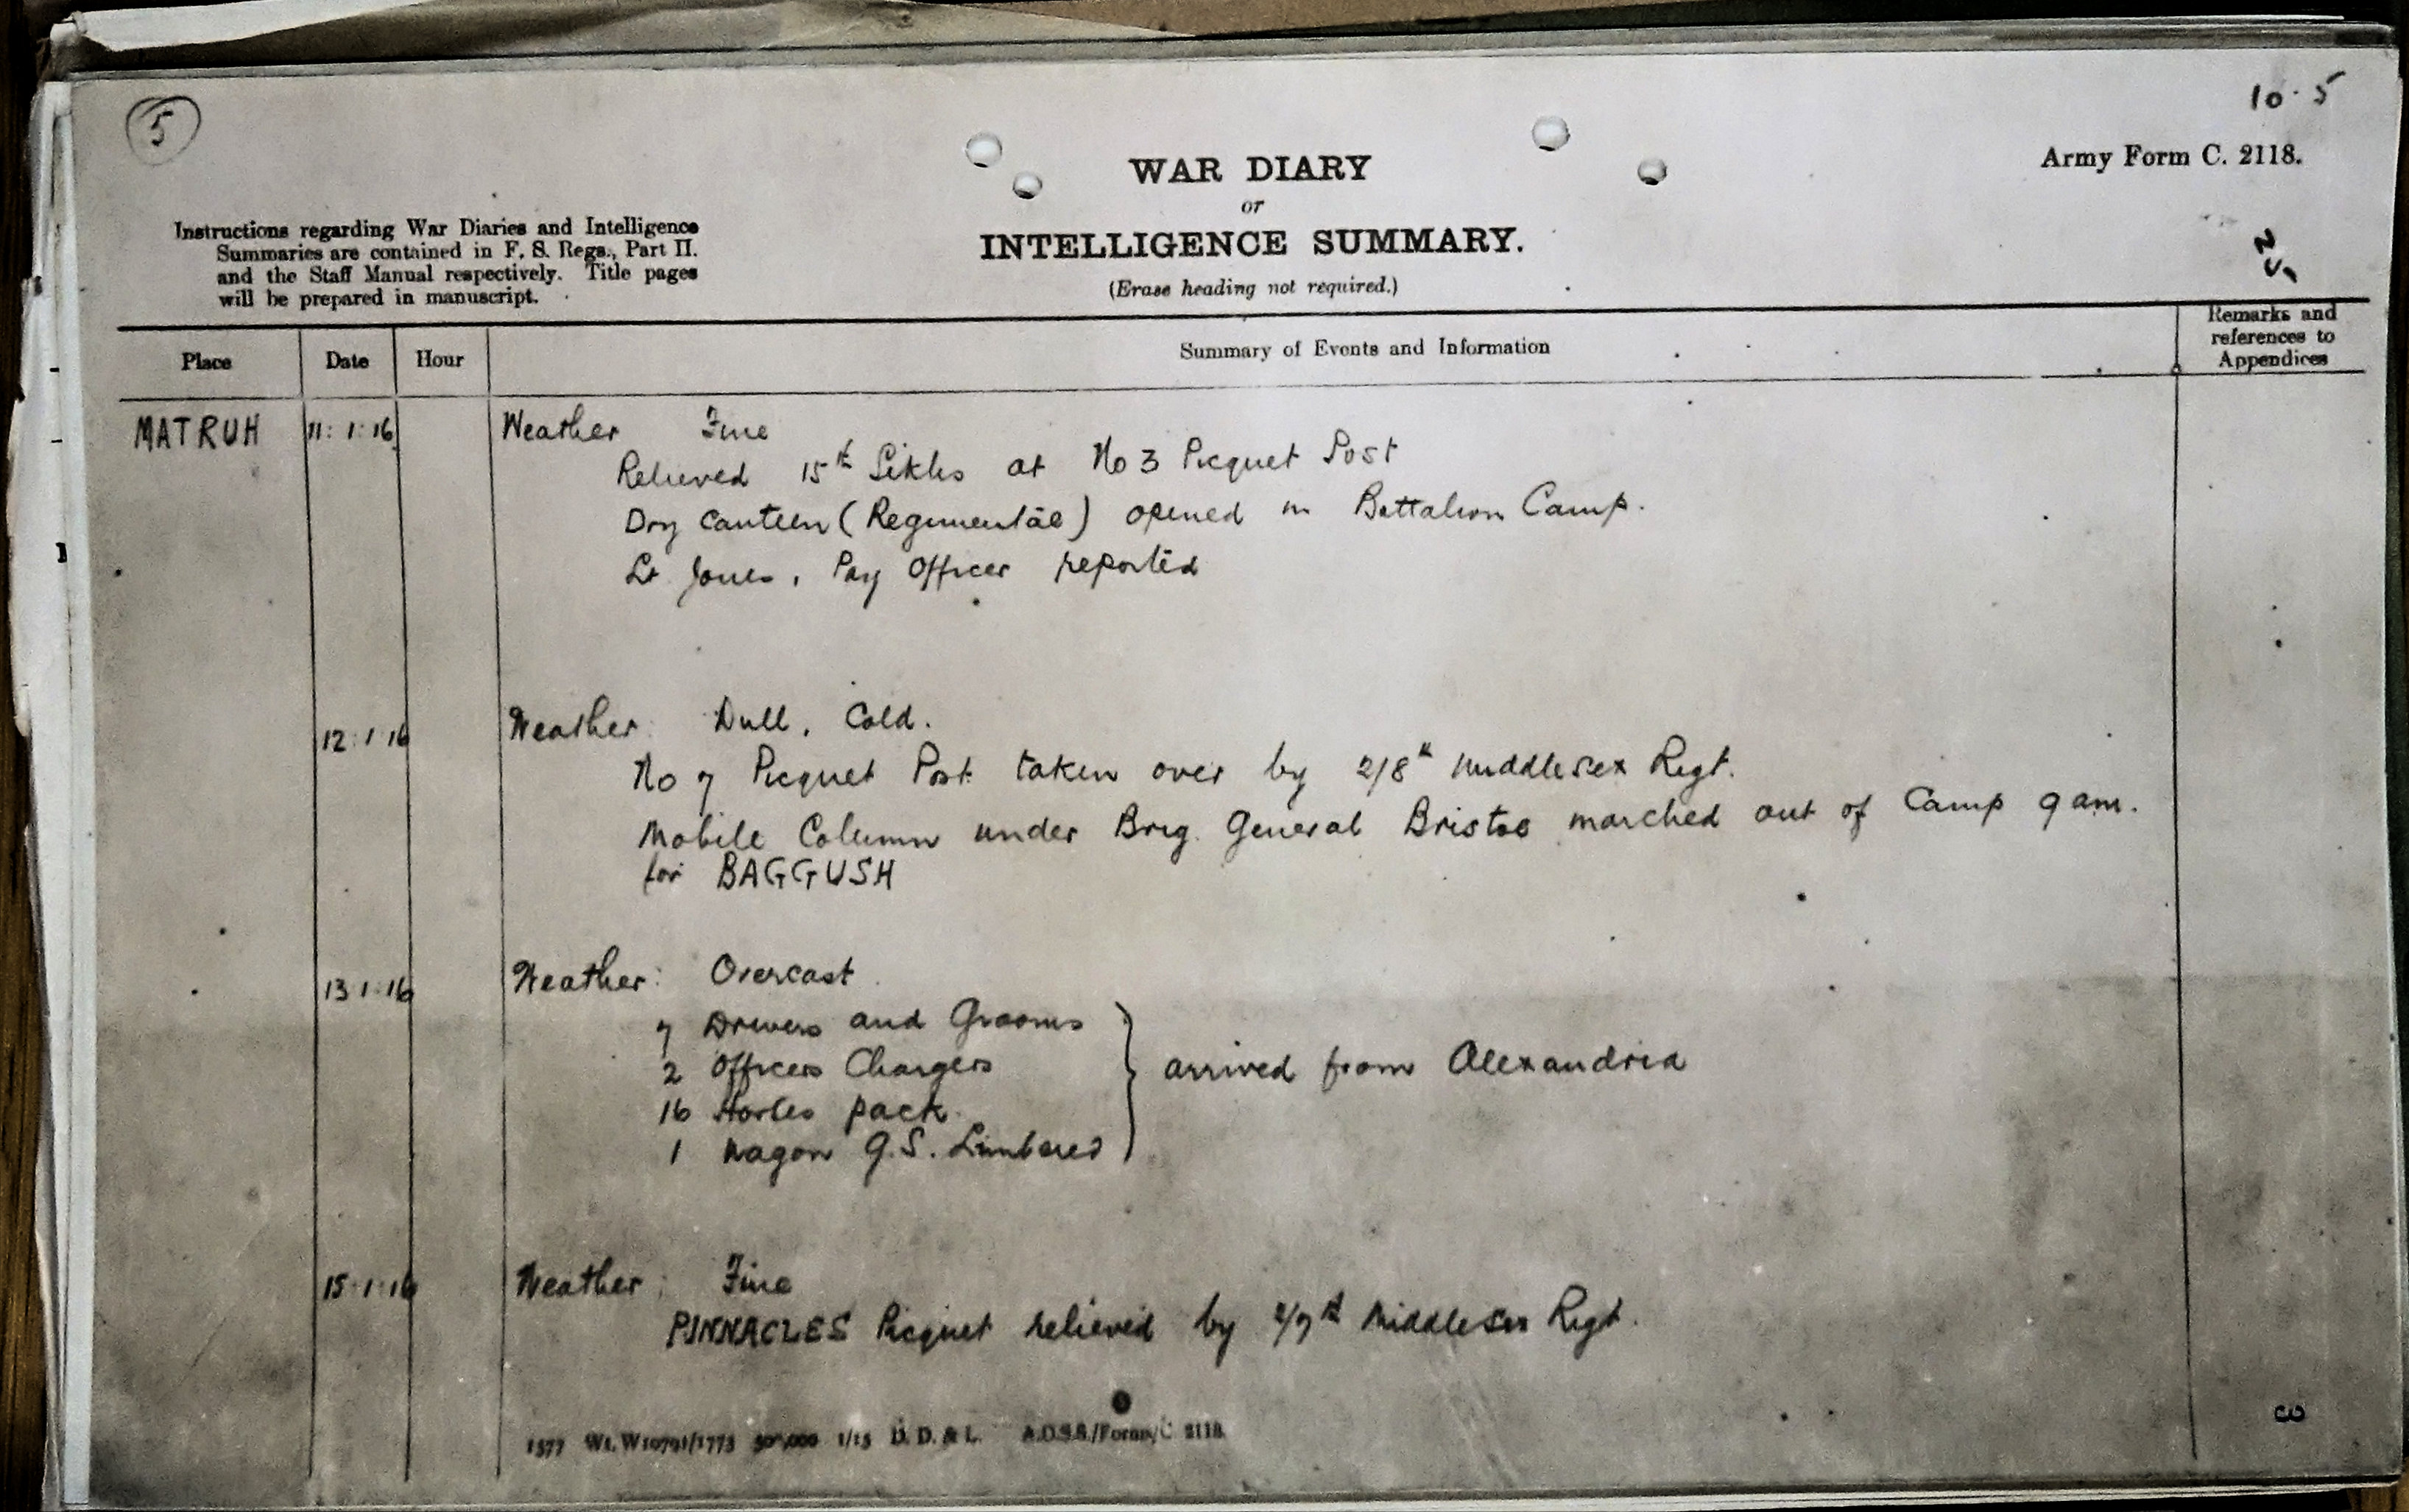 5
10.5
Army Form C. 2118.
WAR DIARY
or
INTELLIGENCE SUMMARY.
(Erase heading not required.)
Instructions regarding War Diaries and Intelligence
Summaries are contained in F. S. Regs., Part II.
and the Staff Manual respectively. Title pages
will be prepared in manuscript.
Place Date Hour Summary of Events and Information Remarks and
references to
Appendices
MATRUH 11:1:16 Weather Fine
Relieved 15th Sikhs at No 3 Picquet Post
Dry Canteen (Regimental) opened in Battalion Camp.
Lt Jones, Pay Officer reported
12:1:16 Weather: Dull, Cold.
No 7 Picquet Post taken over by 2/8th Middlesex Regt.
Mobile Column under Brig. General marched out of Camp 9 am.
for BAGGUSH
13:1:16 Weather: Overcast
7 Drivers and Grooms
2 Officers Chargers
arrived from Alexandria
16 Horses pack
1 Wagon G.S. Limbered
15:1:16 Weather: Fine
PINNACLES Picquet relieved by 2/7th Middlesex Regt.
1577 Wt. W10791/1773 500,000 1/15 D. D. & L. A.D.S.S./Forms/C. 2118.
3